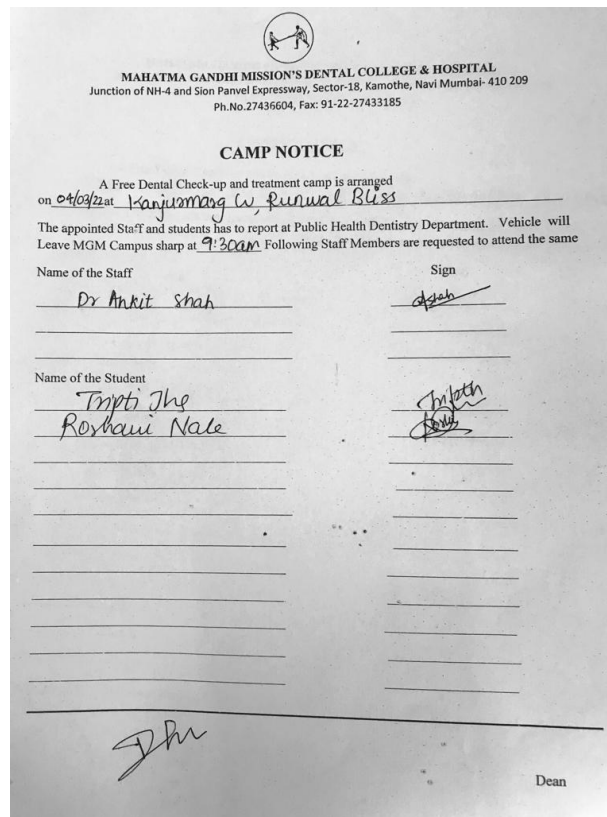 MAHATMA GANDHI MISSION'S DENTAL COLLEGE & HOSPITAL
Junction of NH-4 and Sion Panvel Expressway, Sector-18, Kamothe, Navi Mumbai- 410 209
Ph.No.27436604, Fax: 91-22-27433185
CAMP NOTICE
A Free Dental Check-up and treatment camp is arranged
on 04/03/22 at Kanjurmarg W, Runwal Bliss
The appointed Staff and students has to report at Public Health Dentistry Department. Vehicle will
Leave MGM Campus sharp at 9:30am Following Staff Members are requested to attend the same
Name of the Staff Sign
Dr Ankit Shah AShah
Name of the Student
Tripti Jha
Roshani Nale
Dean